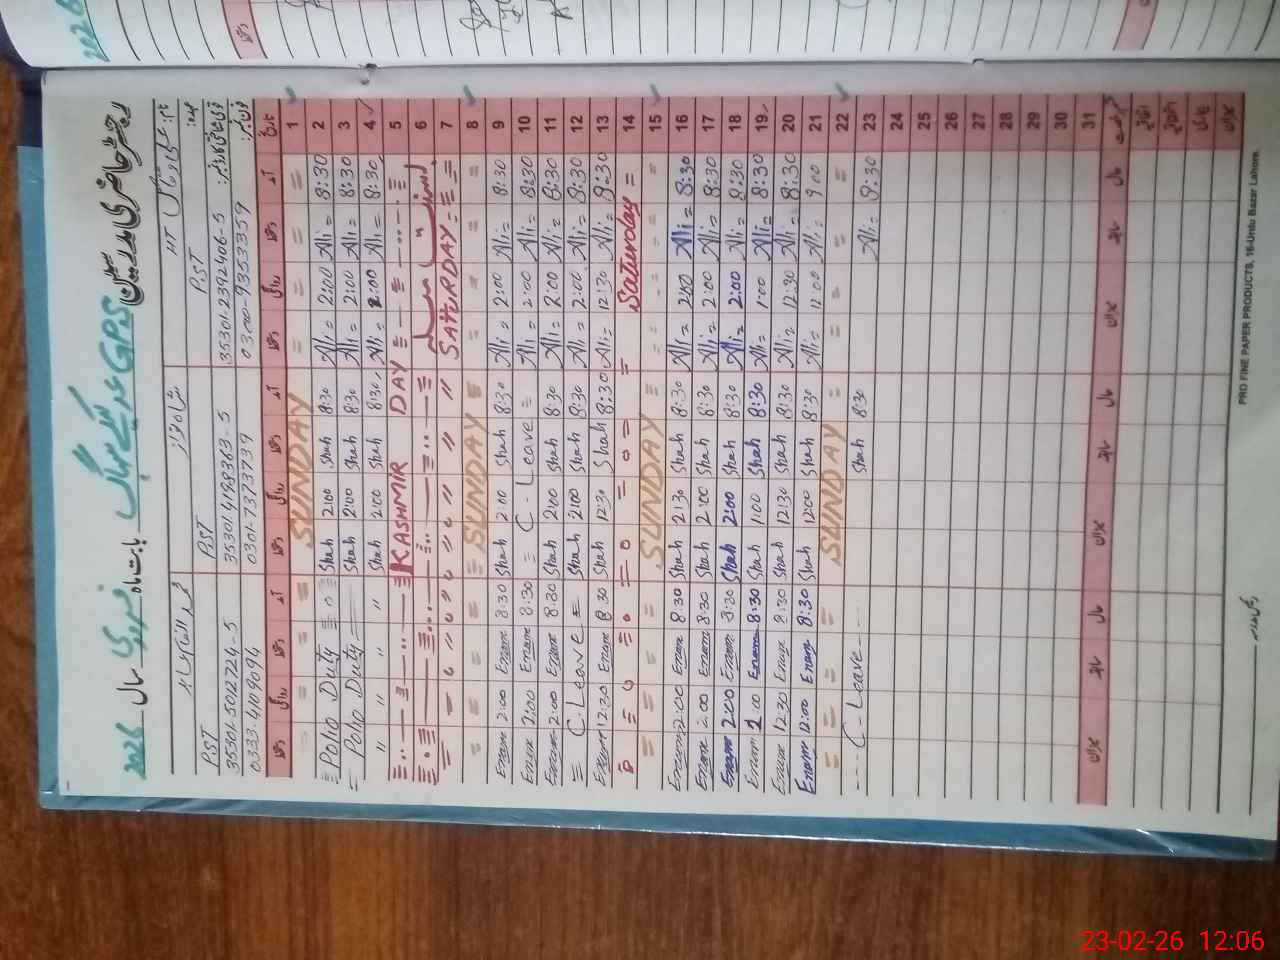 رجسٹر حاضری مدرسین GPS بابت ماہ فروری سال 2026
HT PST PST
35301-2392406-5 35301-4198363-5 35301-5012724-5
0300-9353359 0301-7373739 0333-4109094
تاریخ آمد دستخط روانگی دستخط آمد دستخط روانگی دستخط آمد دستخط روانگی دستخط
1 = = = = SUNDAY = = = =
2 8:30 Ali 2:00 Ali 8:30 Shah 2:00 Shah Polio Duty
3 8:30 Ali 2:00 Ali 8:30 Shah 2:00 Shah Polio Duty
4 8:30 Ali 2:00 Ali 8:30 Shah 2:00 Shah " " " "
5 KASHMIR DAY
6
7 SATURDAY " " " "
8 SUNDAY
9 8:30 Ali 2:00 Ali 8:30 Shah 2:00 Shah 8:30 Enam 2:00 Enam
10 8:30 Ali 2:00 Ali = C-Leave = 8:30 Enam 2:00 Enam
11 8:30 Ali 2:00 Ali 8:30 Shah 2:00 Shah 8:30 Enam 2:00 Enam
12 8:30 Ali 2:00 Ali 8:30 Shah 2:00 Shah = C.Leave =
13 8:30 Ali 12:30 Ali 8:30 Shah 12:30 Shah 8:30 Enam 12:30 Enam
14 Saturday
15 SUNDAY
16 8:30 Ali 2:00 Ali 8:30 Shah 2:30 Shah 8:30 Enam 2:00 Enam
17 8:30 Ali 2:00 Ali 8:30 Shah 2:00 Shah 8:30 Enam 2:00 Enam
18 8:30 Ali 2:00 Ali 8:30 Shah 2:00 Shah 8:30 Enam 2:00 Enam
19 8:30 Ali 1:00 Ali 8:30 Shah 1:00 Shah 8:30 Enam 1:00 Enam
20 8:30 Ali 12:30 Ali 8:30 Shah 12:30 Shah 8:30 Enam 12:30 Enam
21 9:00 Ali 11:00 Ali 8:30 Shah 12:00 Shah 8:30 Enam 12:00 Enam
22 SUNDAY
23 8:30 Ali 8:30 Shah C-Leave
24
25
26
27
28
29
30
31
حال سابقہ میزان حال سابقہ میزان حال سابقہ میزان
میزان
PRO FINE PAPER PRODUCTS, 16-Urdu Bazar Lahore.
2026
23-02-26 12:06